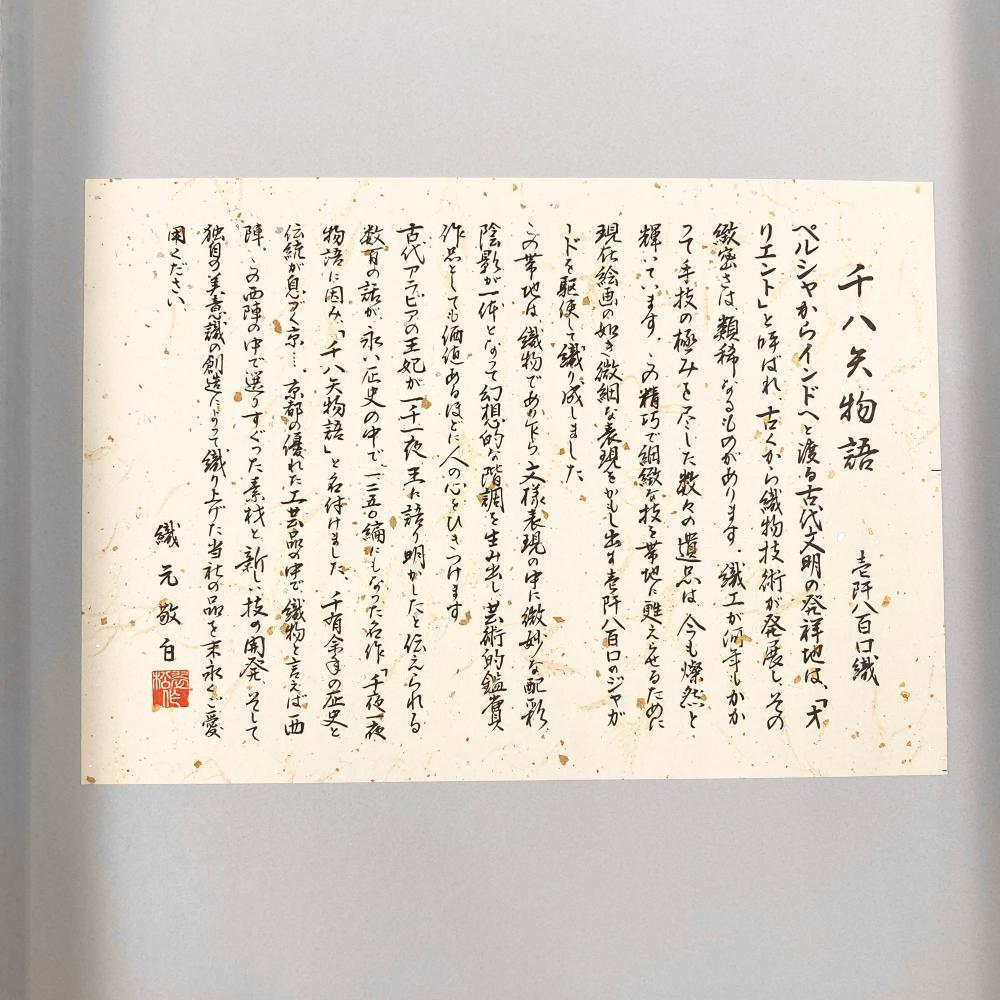 千八矢物語
壱阡八百口織
ペルシャからインドへと渡る古代文明の発祥地は、「オ
リエント」と呼ばれ、古くから織物技術が発展し、その
緻密さは類稀なるものがあります。織工が何年もかか
って手技の極みを尽した数々の遺品は、今も燦然と
輝いています。この精巧で細緻な技を帯地に甦えらせるために
現在絵画の如き微細な表現をかもし出す壱阡八百口のジャガ
ードを駆使して織り成しました
この帯地は、織物であり乍ら、文様表現の中に微妙な配彩
陰影が一体となって幻想的な階調を生み出し、芸術的鑑賞
作品としても価値あるほどに人の心をひきつけます
古代アラビアの王妃が一千一夜、王に語り明かしたと伝えられる
数百の話が、永い歴史の中で、一二五〇編にもなった名作「千夜一夜
物語に因み、「千八矢物語」と名付けました、千有余年の歴史と
伝統が息づく京…、京都の優れた工芸品の中で織物と言えば西
陣、この西陣の中で選りすぐった素材と、新しい技の開発、そして
独自の美意識の創造によって織り上げた当社の品を末永くご愛
用ください、
織元敬白